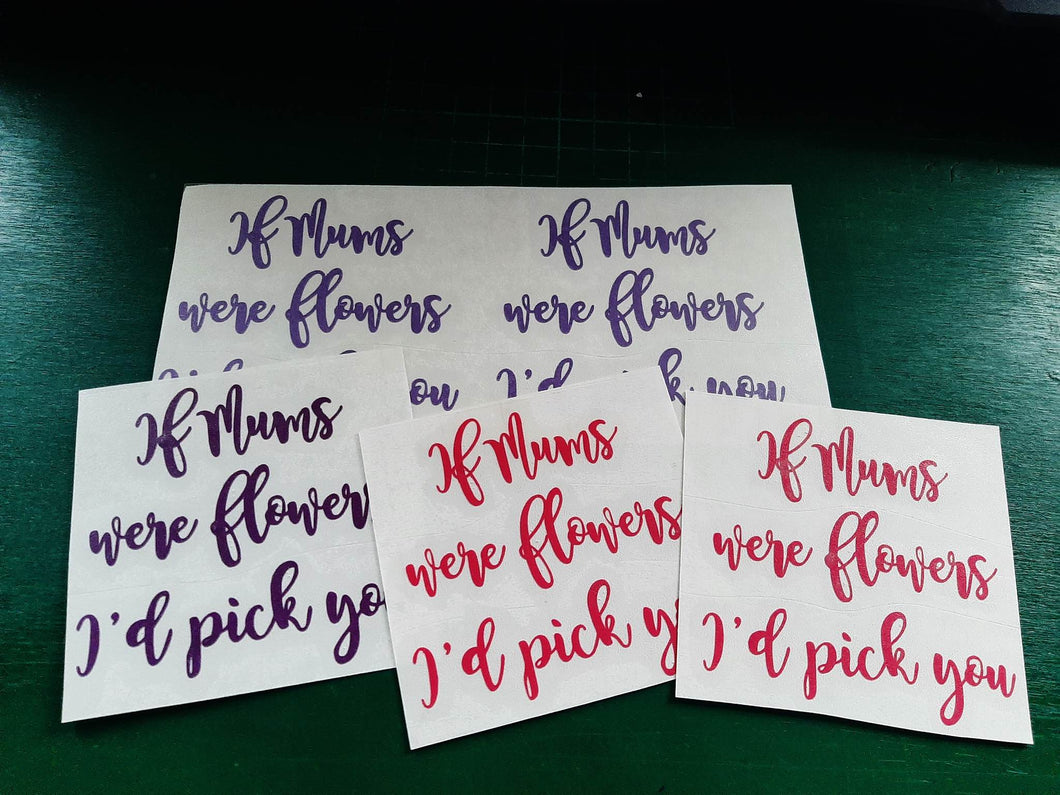 If Mums
were flowers
I'd pick you
If Mums
were flowers
I'd pick you
If Mums
were flowers
I'd pick you
If Mums
were flowers
I'd pick
If Mums
were flowers
I'd pick you